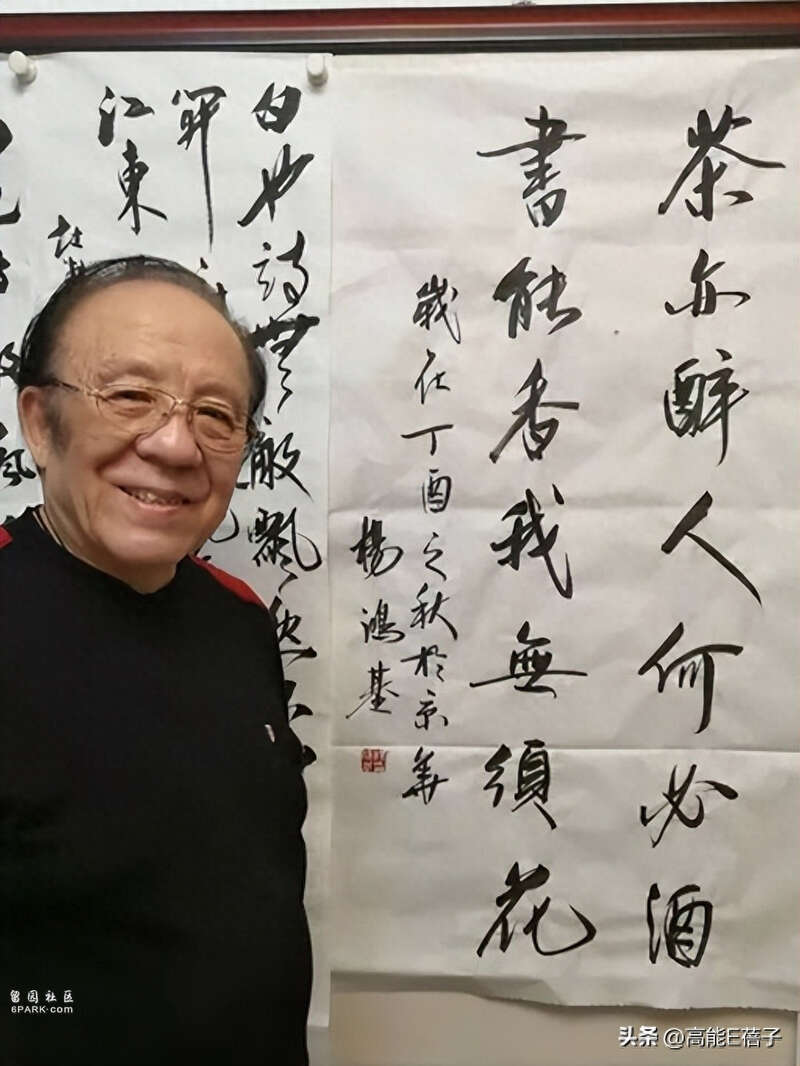 茶亦醉人何必酒
書能香我無須花
歲在丁酉之秋於京華
楊鴻基
白也詩無敵飄然
軍
江東
留园社区
6PARK.com
头条 @高能E蓓子